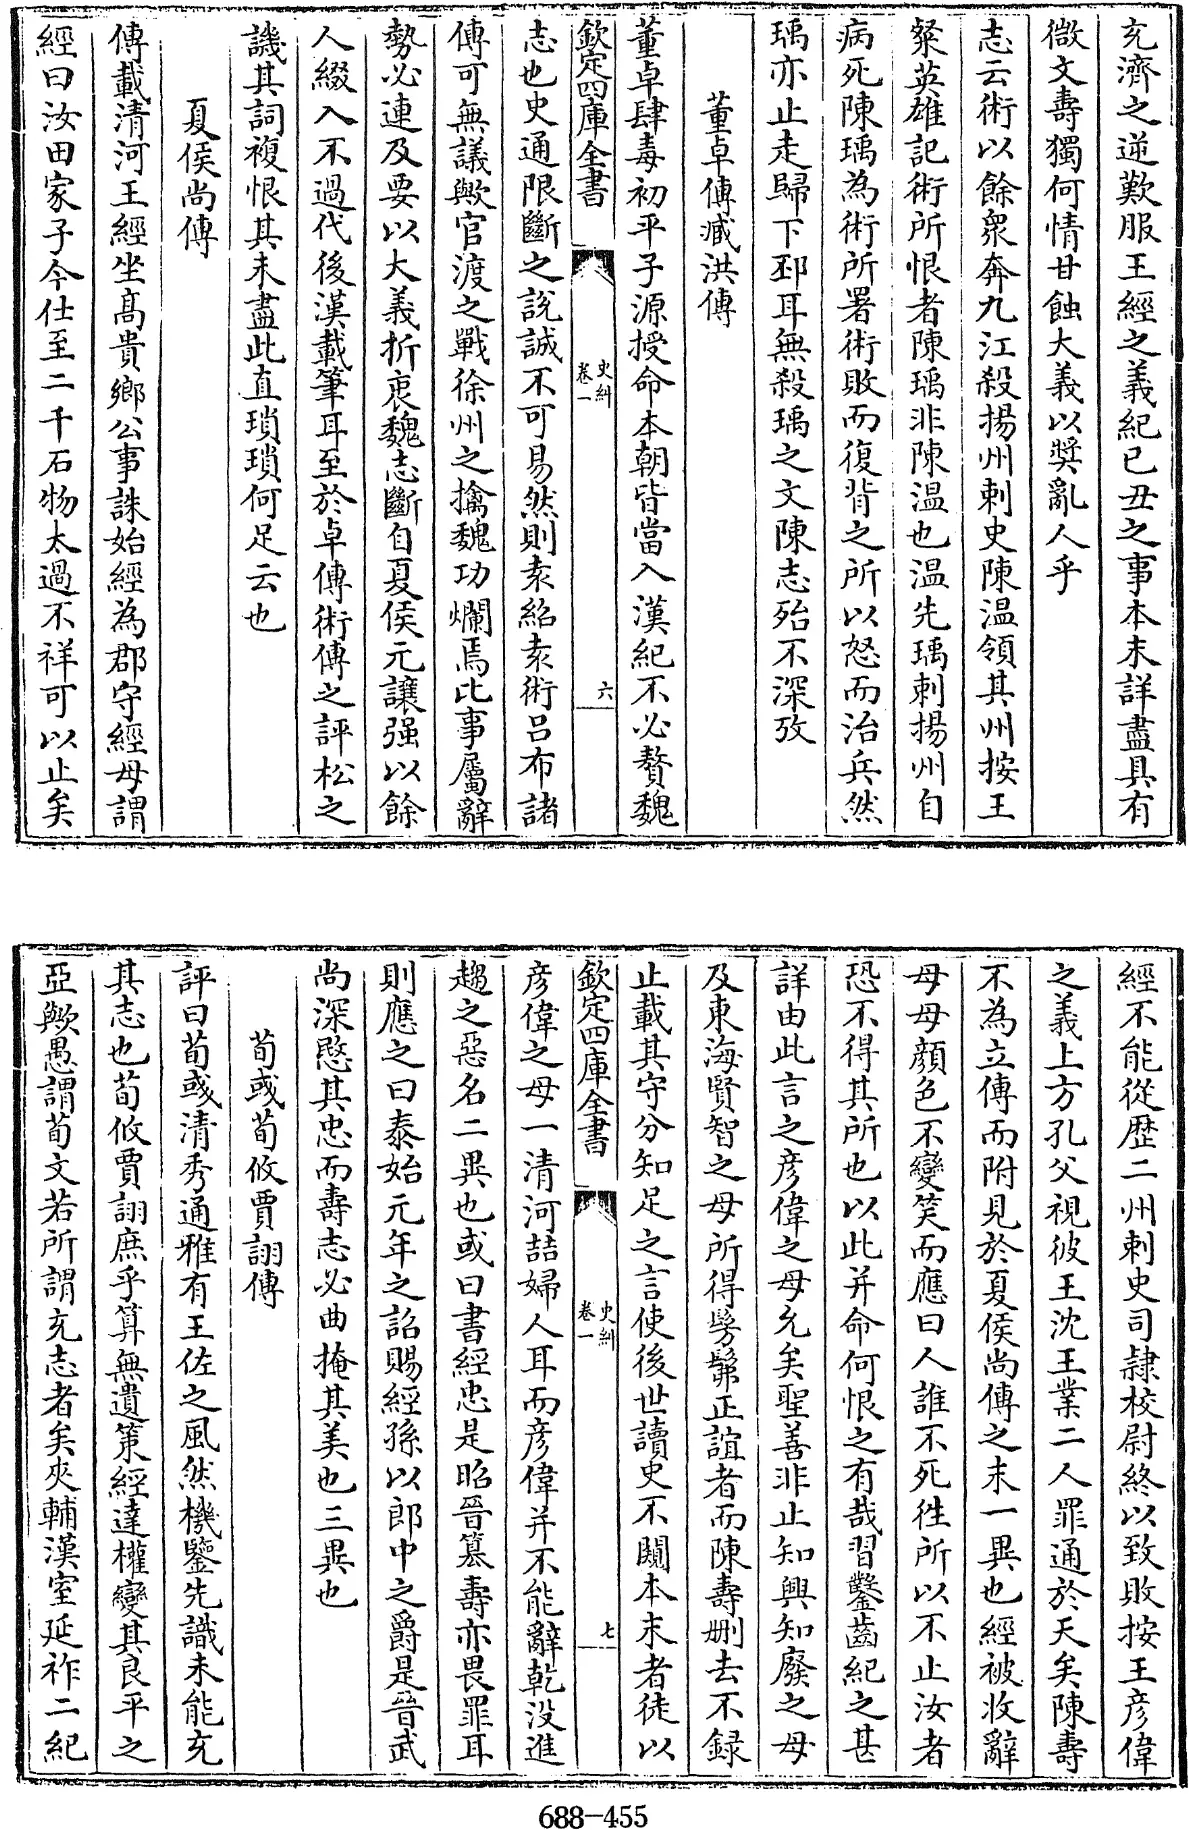 充濟之逆歎服王經之義紀已丑之事本末詳盡具有
微文壽獨何情甘蝕大義以奬亂人乎
志云術以餘衆奔九江殺揚州刺史陳温領其州按王
粲英雄記術所恨者陳瑀非陳温也温先瑀刺揚州自
病死陳瑀為術所署術敗而復背之所以怒而治兵然
瑀亦止走歸下邳耳無殺瑀之文陳志殆不深攷
董卓傳臧洪傳
董卓肆毒初平子源授命本朝皆當入漢紀不必贅魏
欽定四庫全書
史糾
卷一
六
志也史通限斷之説誠不可易然則袁紹袁術吕布諸
傳可無議歟官渡之戰徐州之擒魏功爛焉比事屬辭
勢必連及要以大義折衷魏志斷自夏侯元讓强以餘
人綴入不過代後漢載筆耳至於卓傳術傳之評松之
譏其詞複恨其未盡此直瑣瑣何足云也
夏侯尚傳
傳載清河王經坐髙貴鄉公事誅始經為郡守經母謂
經曰汝田家子今仕至二千石物太過不祥可以止矣
經不能從歴二州刺史司隷校尉終以致敗按王彦偉
之義上方孔父視彼王沈王業二人罪通於天矣陳壽
不為立傳而附見於夏侯尚傳之末一異也經被收辭
母母顔色不變笑而應曰人誰不死徃所以不止汝者
恐不得其所也以此并命何恨之有哉習鑿齒紀之甚
詳由此言之彦偉之母允矣聖善非止知興知廢之母
及東海賢智之母所得髣髴正誼者而陳壽刪去不録
止載其守分知足之言使後世讀史不闚本末者徒以
欽定四庫全書
史糾
卷一
七
彦偉之母一清河喆婦人耳而彦偉并不能辭乾没進
趨之惡名二異也或曰書經忠是昭晉簒壽亦畏罪耳
則應之曰泰始元年之詔賜經孫以郎中之爵是晉武
尚深愍其忠而壽志必曲掩其美也三異也
荀彧荀攸賈詡傳
評曰荀彧清秀通雅有王佐之風然機鑒先識未能充
其志也荀攸賈詡庶乎算無遺策經達權變其良平之
亞歟愚謂荀文若所謂充志者矣夾輔漢室延祚二紀
688-455